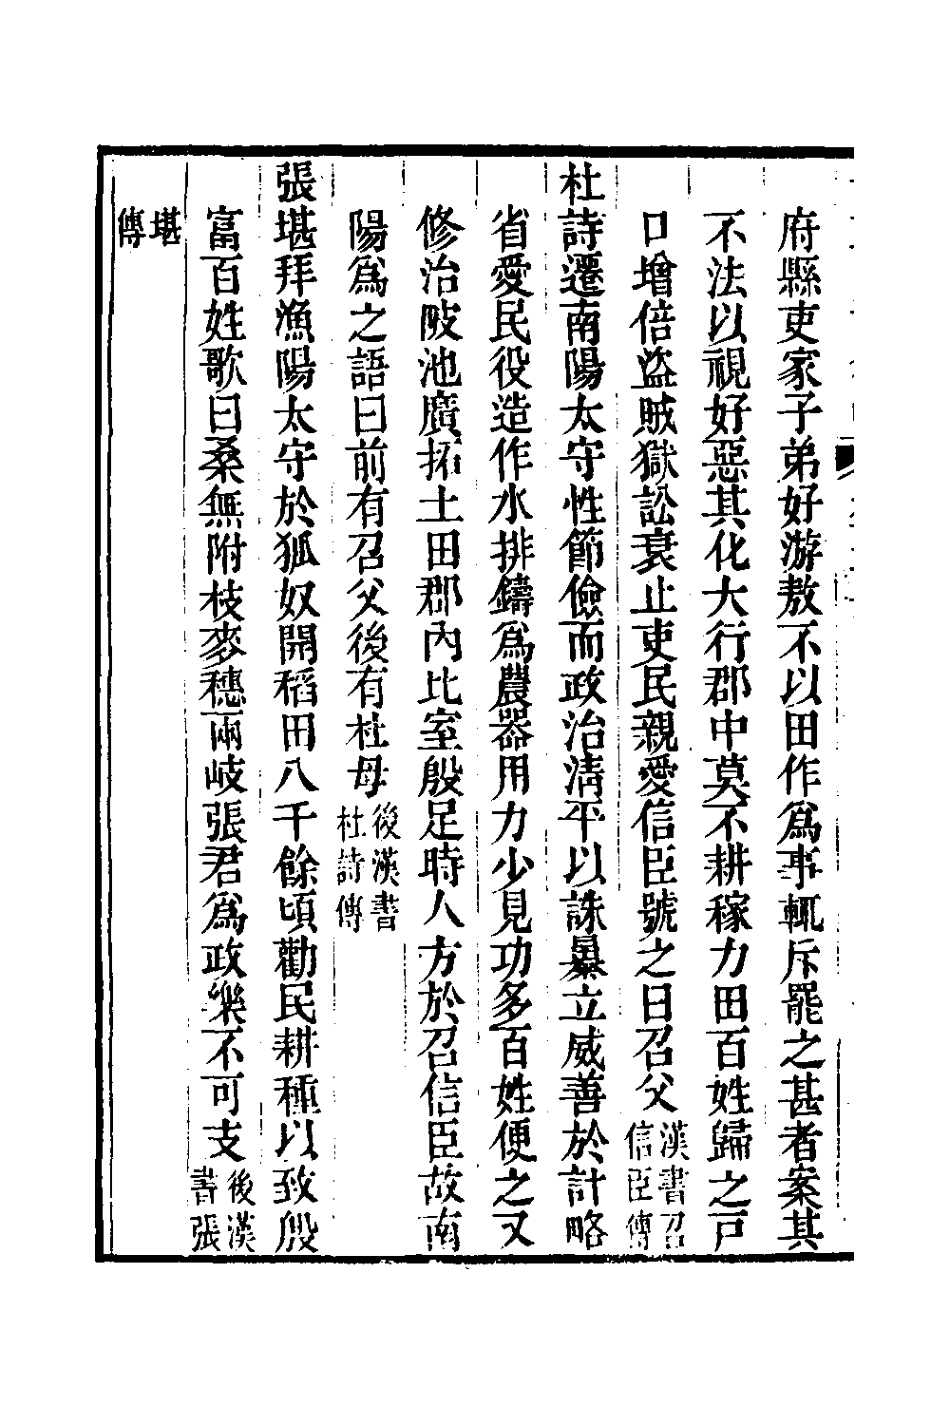 府縣吏家子弟好游敖不以田作爲事輒斥罷之甚者案其
不法以視好惡其化大行郡中莫不耕稼力田百姓歸之戸
口增倍盜賊獄訟衰止吏民親愛信臣號之曰召父漢書召信臣傳
杜詩遷南陽太守性節儉而政治清平以誅暴立威善於計略
省愛民役造作水排鑄爲農器用力少見功多百姓便之又
修治陂池廣拓土田郡內比室殷足時人方於召信臣故南
陽爲之語曰前有召父後有杜母後漢書杜詩傳
張堪拜漁陽太守於狐奴開稻田八千餘頃勸民耕種以致殷
富百姓歌曰桑無附枝麥穗兩岐張君爲政樂不可支後漢書張
堪傳